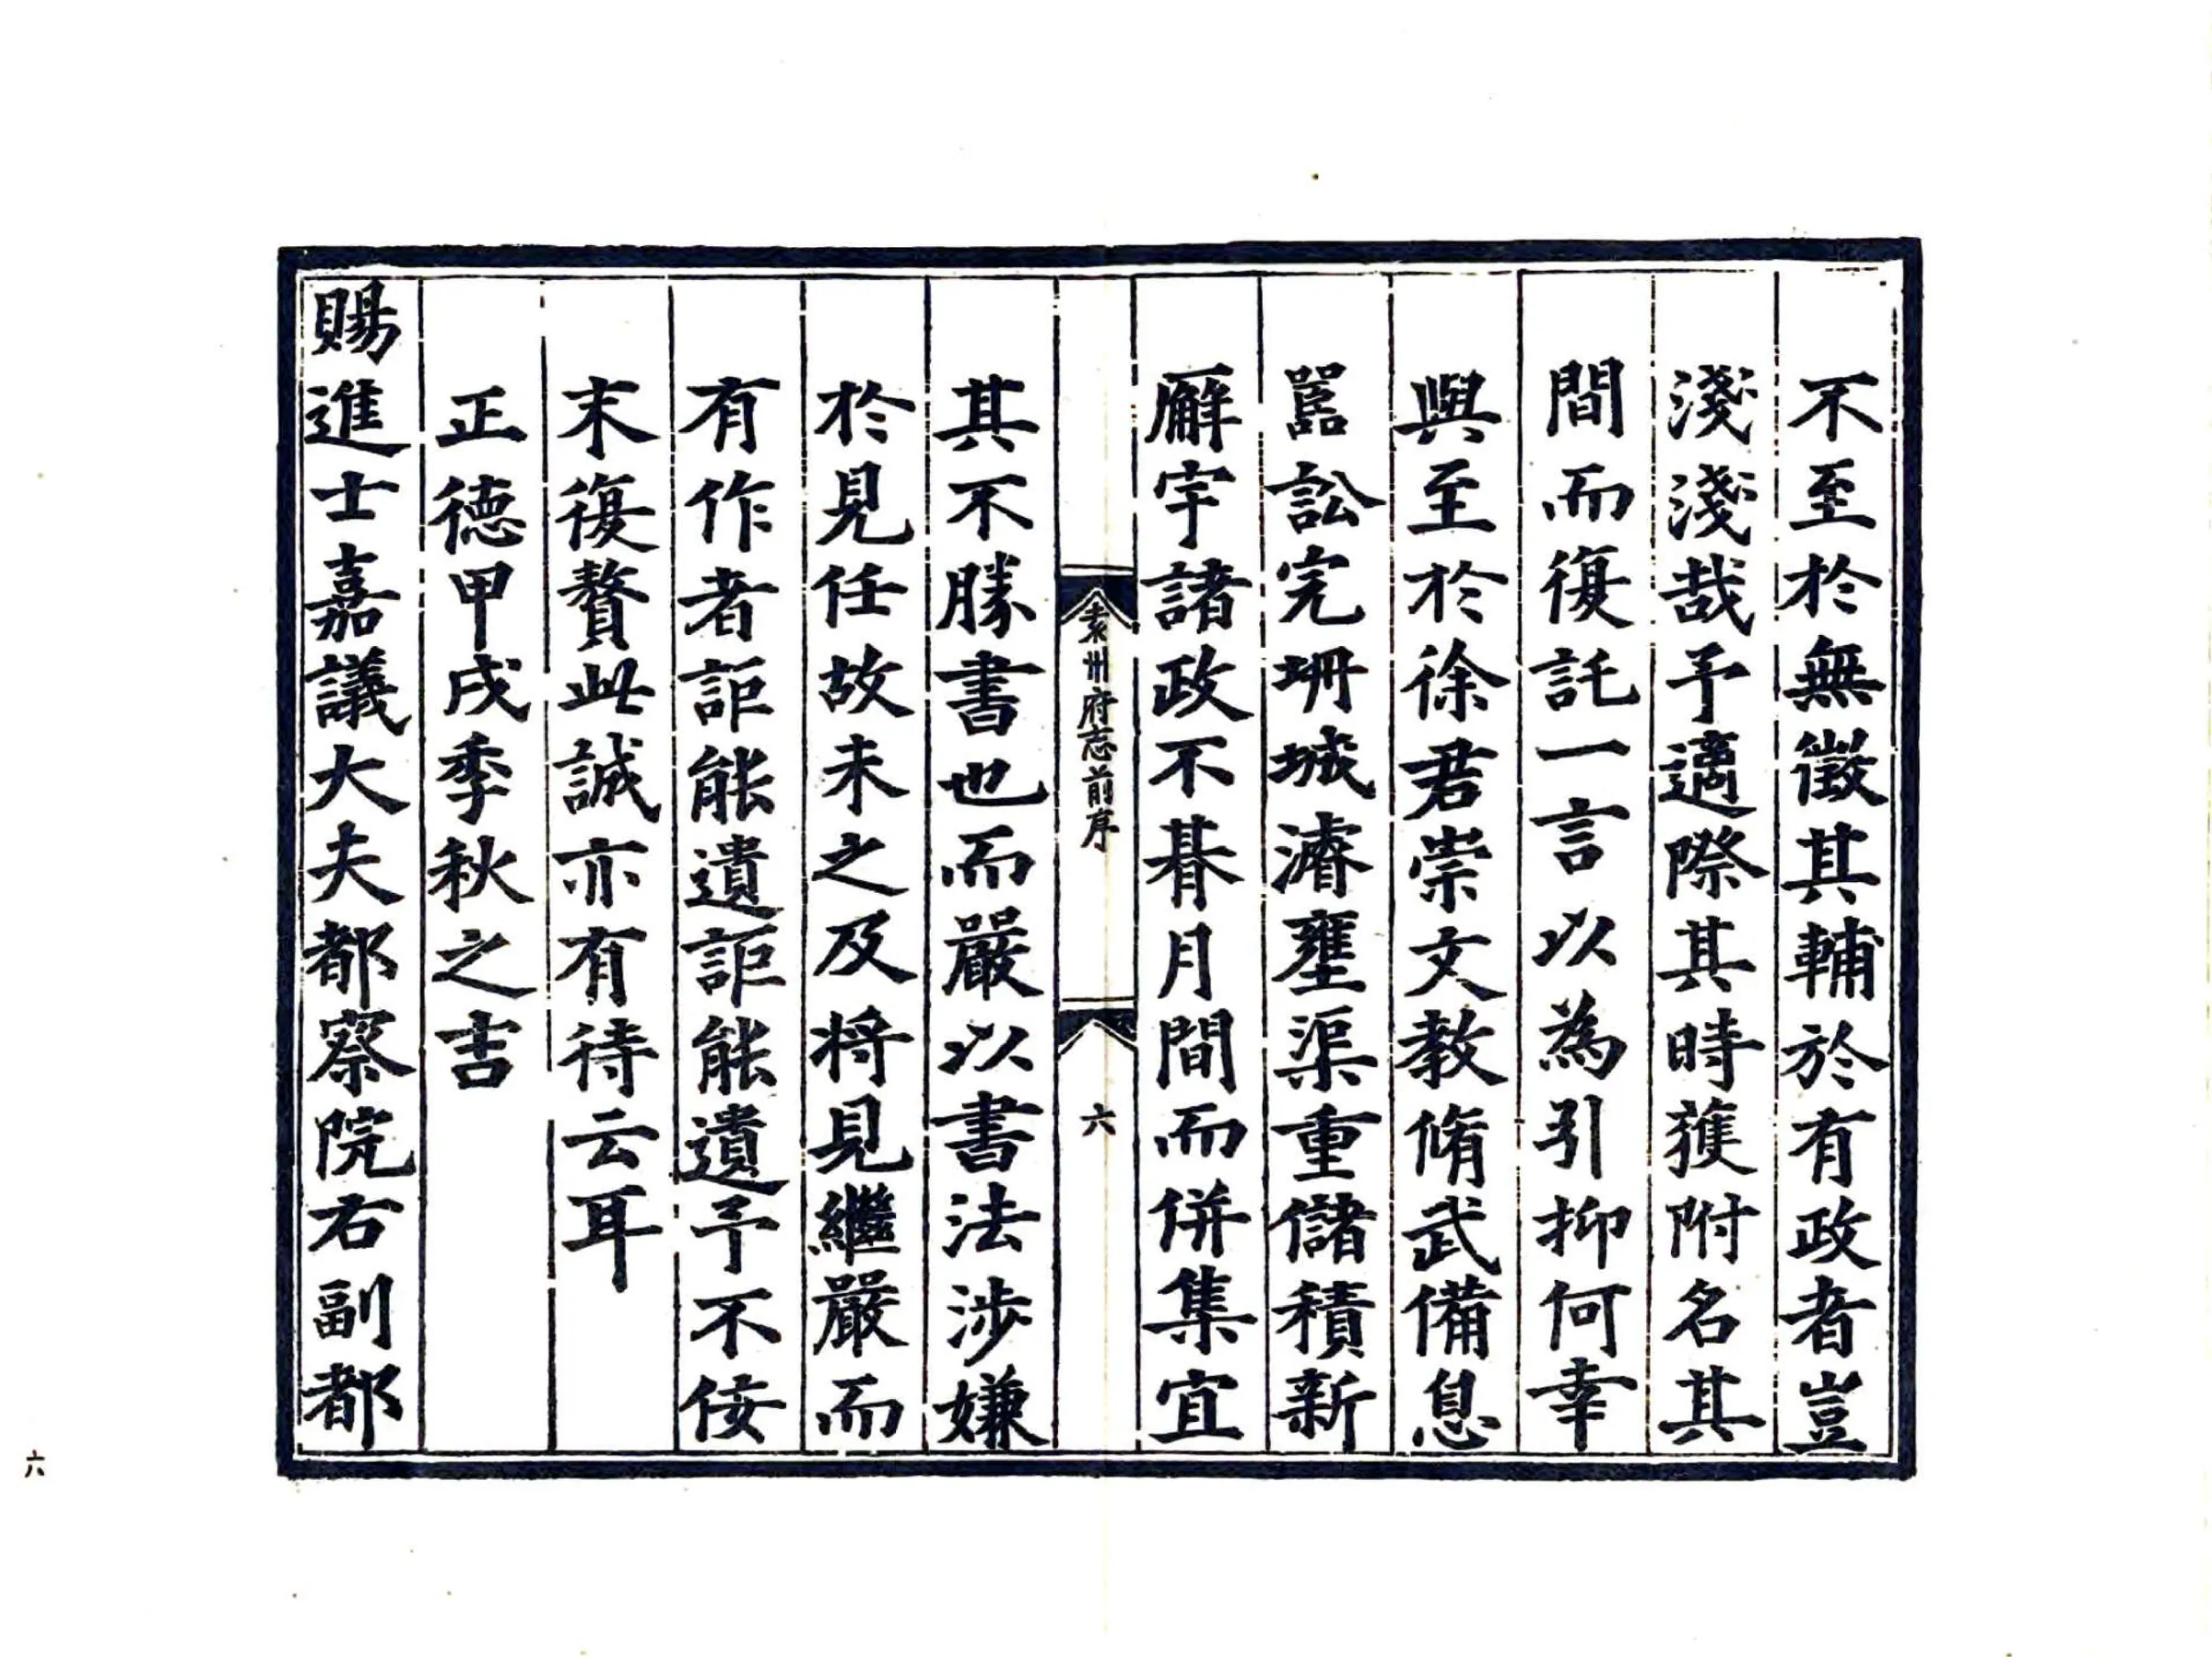 不至於無徵其輔於有政者豈
淺淺哉予適際其時獲附名其
間而復託一言以為引抑何幸
與至於徐君崇文教脩武備息
嚚訟完坍城濬壅渠重儲積新
廨宇諸政不朞月間而併集宜
袁州府志前序
六
其不勝書也而嚴以書法涉嫌
於見任故未之及将見繼嚴而
有作者詎能遺詎能遺予不佞
末復贅此誠亦有待云耳
正德甲戌季秋之吉
賜進士嘉議大夫都察院右副都
六